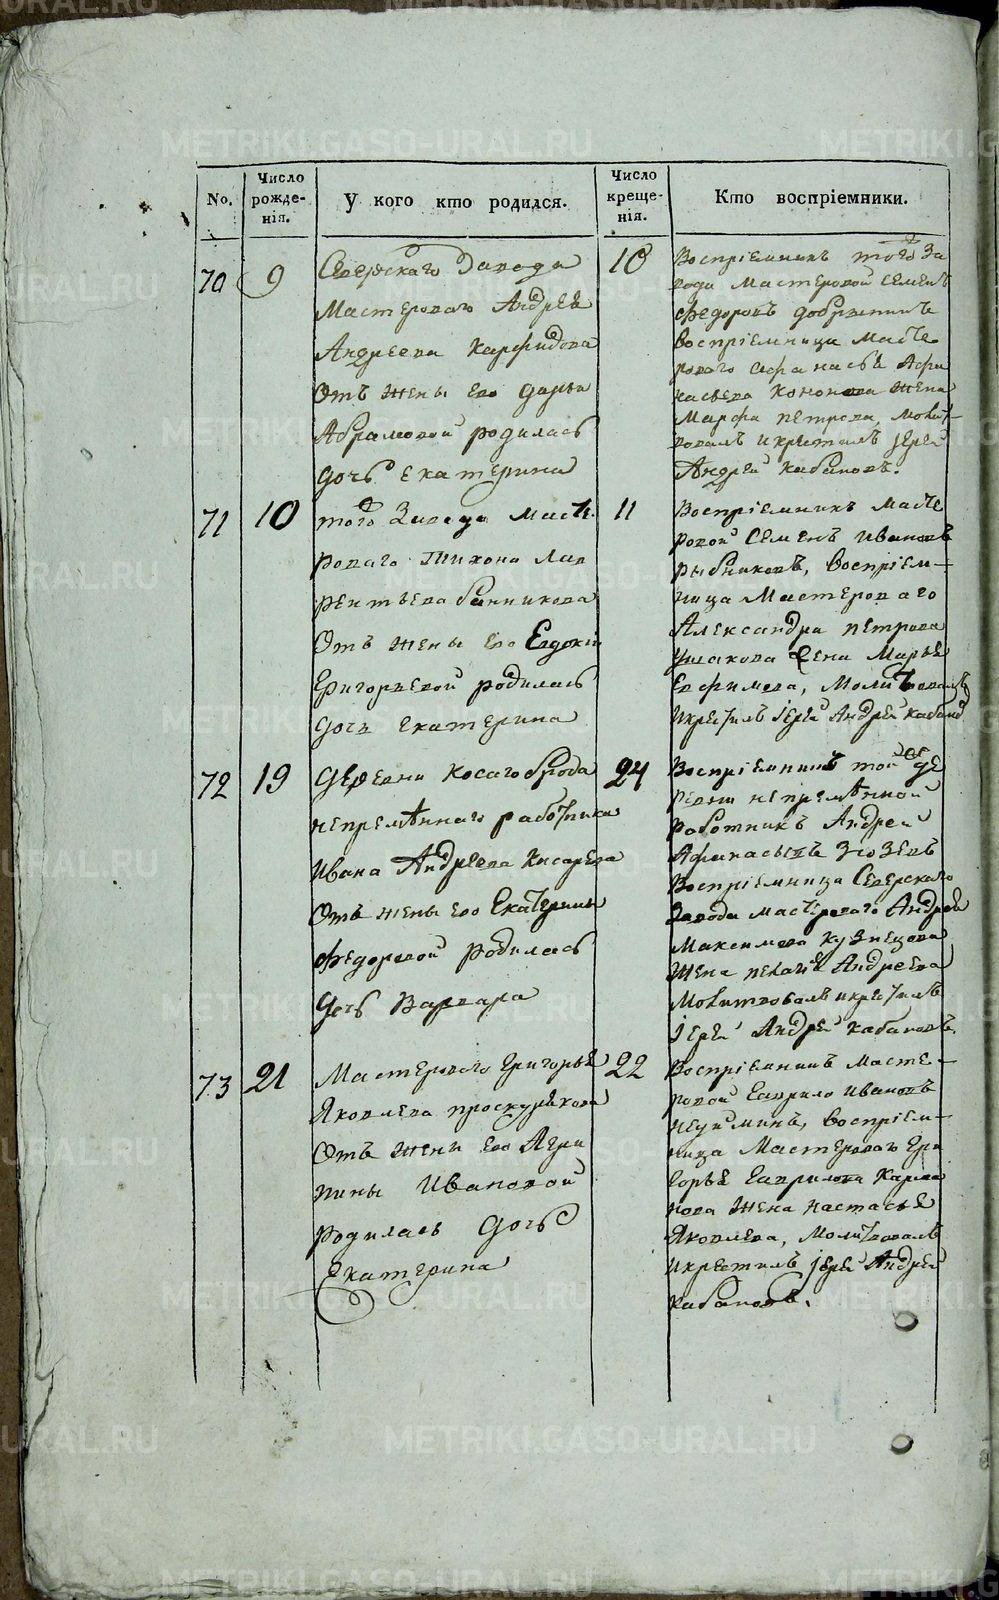 No.
Число рожде-
нія.
У кого кто родился.
Число креще-
нія.
Кто воспріемники.
70
9
Северскаго завода
Мастероваго Андрея
Андреева Карфидова
Отъ жены его Дарьи
Абрамовой родилась
дочь Екатерина
10
Воспріемникъ того За
вода Мастеровой Семенъ
Федоровъ
воспріемница Масте
роваго Афанасья Афа
насьева Кононова жена
Марфа Петрова, Молит
вовалъ и крестилъ іерей
Андрей Кабановъ.
71
10
того Завода Масте
роваго Тихона Лав
рентьева Банникова
Отъ жены его Евдокіи
Григорьевой родилась
дочь Екатерина
11
Воспріемникъ Масте
ровой Семенъ Ивановъ
Рыбниковъ, Воспріем-
ница Мастероваго
Александра Петрова
Ушакова жена Марья
Ефимова, Молитвовалъ
и крестилъ Іерей Андрей Кабанов
72
19
Деревни Косагоброда
непремѣннаго работника
Ивана Андреева Кисарева
Отъ жены его Екатерины
Федоровой родилась
дочь Варвара
24
Воспріемникъ той же де
ревни непремѣнной
работникъ Андрей
Афанасьевъ Зюзевъ
Воспріемница Северскаго
завода мастероваго Андрея
Максимова Кузнецова
жена Пелагія Андреева
Молитвовалъ и крестилъ
Іерей Андрей Кабановъ.
73
21
Мастероваго Григорья
Яковлева Проскурякова
Отъ жены его Агри
пины Ивановой
родилась дочь
Екатерина
22
Воспріемникъ Масте-
ровой Гаврило Ивановъ
Неуйминъ, воспріем-
ница Мастероваго Гри
горья Гаврилова
жена Настасья
Яковлева, Молитвовалъ
и крестилъ іерей Андрей
Кабановъ.
METRIKI.GASO-URAL.RU